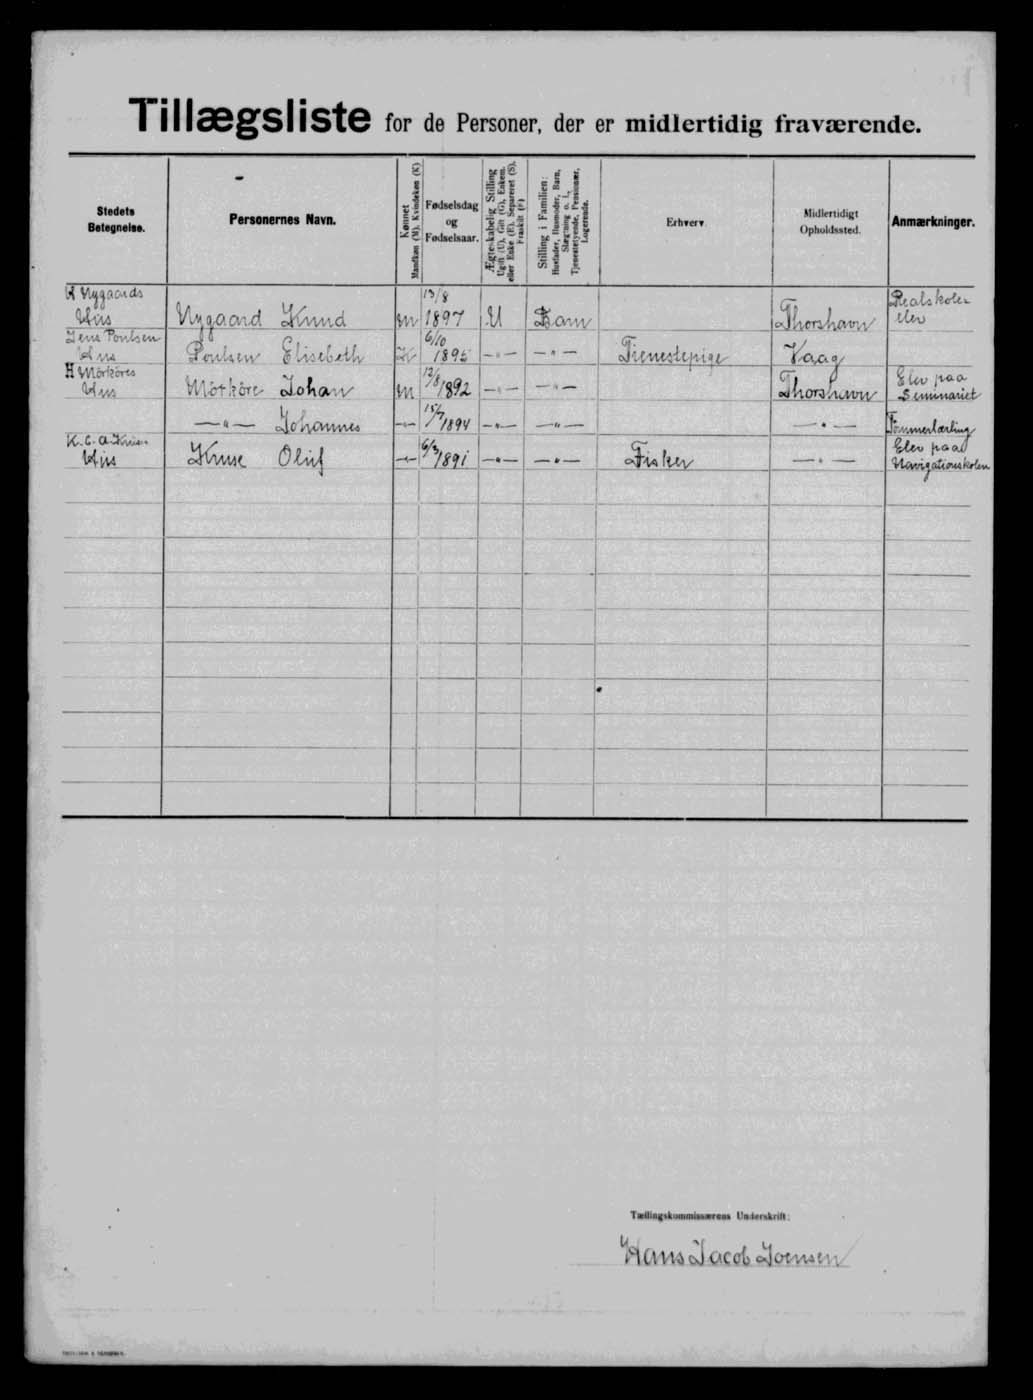 Tillægsliste for de Personer, der er midlertidig fraværende.
Stedets Betegnelse.
Personernes Navn.
Kønnet
Mandkøn (M). Kvindekøn (K)
Fødselsdag og Fødselsaar.
Ægteskabelig Stilling
Ugift (U), Gift (G), Enkem. eller Enke (E), Separeret (S), Fraskilt (F)
Stilling i Familien:
Husfader, Husmoder, Barn, Slægtning o. l., Tjenestetyende, Pensionær, Logerende.
Erhverv.
Midlertidigt Opholdssted.
Anmærkninger.
Nygaards Hus Nygaard Knud M 13/8 1897 U Barn Thorshavn Realskole elev
Jens Poulsen Hus Poulsen Elisebeth K 6/10 1895 —"— —"— Tienestepige Vaag
H Mörköres Hus Mörköre Johan M 12/8 1892 —"— —"— Thorshavn Elev paa Seminariet
—"— Johannes —"— 15/7 1894 —"— —"— —"— Tömmerlærling
K. C. A. Kruses Hus Kruse Oluf —"— 6/3 1891 —"— —"— Fisker —"— Elev paa Navigationskolen
Tællingskommissærens Underskrift:
Hans Jacob Joensen